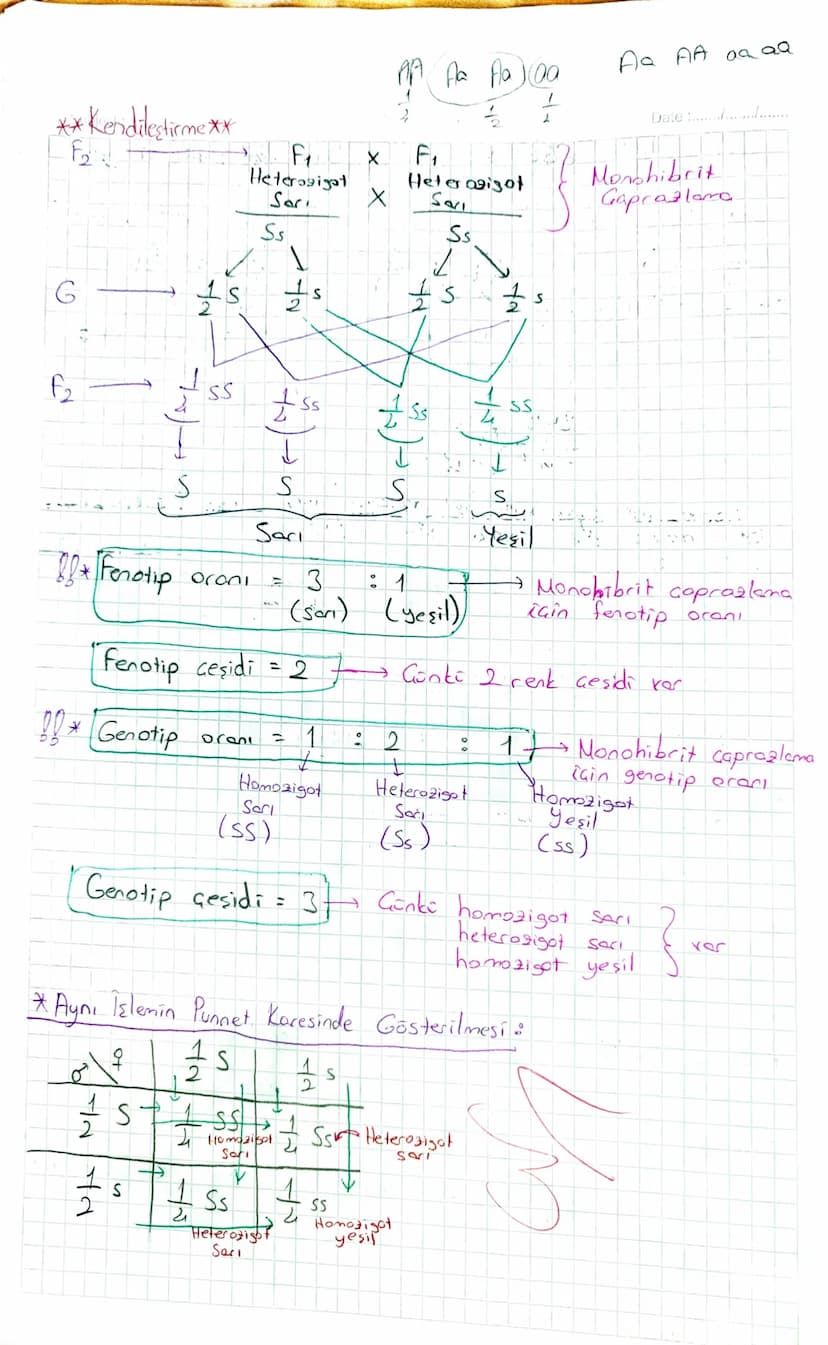 AA Aa Aa aa Aa AA aa aa
1/2 1/2 1/2
Date :....../....../......
**Kendileştirme**
F2 F1 x F1
Heterozigot x Heterozigot
Sarı Sarı
Monohibrit
Çaprazlama
Ss Ss
G 1/2 S 1/2 s 1/2 S 1/2 s
F2 1/4 SS 1/4 Ss 1/4 Ss 1/4 ss
S S S s
Sarı Yeşil
!!* Fenotip oranı = 3 : 1
(Sarı) (yeşil)
Monohibrit çaprazlama
için fenotip oranı
Fenotip çeşidi = 2 Çünkü 2 renk çeşidi var
!!* Genotip oranı = 1 : 2 : 1
Monohibrit çaprazlama
için genotip oranı
Homozigot Heterozigot Homozigot
Sarı Sarı Yeşil
(SS) (Ss) (ss)
Genotip çeşidi = 3 Çünkü homozigot sarı
heterozigot sarı
homozigot yeşil
var
*Aynı İşlemin Punnet Karesinde Gösterilmesi:
♂\♀ 1/2 S 1/2 s
1/2 S 1/4 SS 1/4 Ss Heterozigot
Homozigot sarı
Sarı
1/2 s 1/4 Ss 1/4 ss
Heterozigot Homozigot
Sarı yeşil